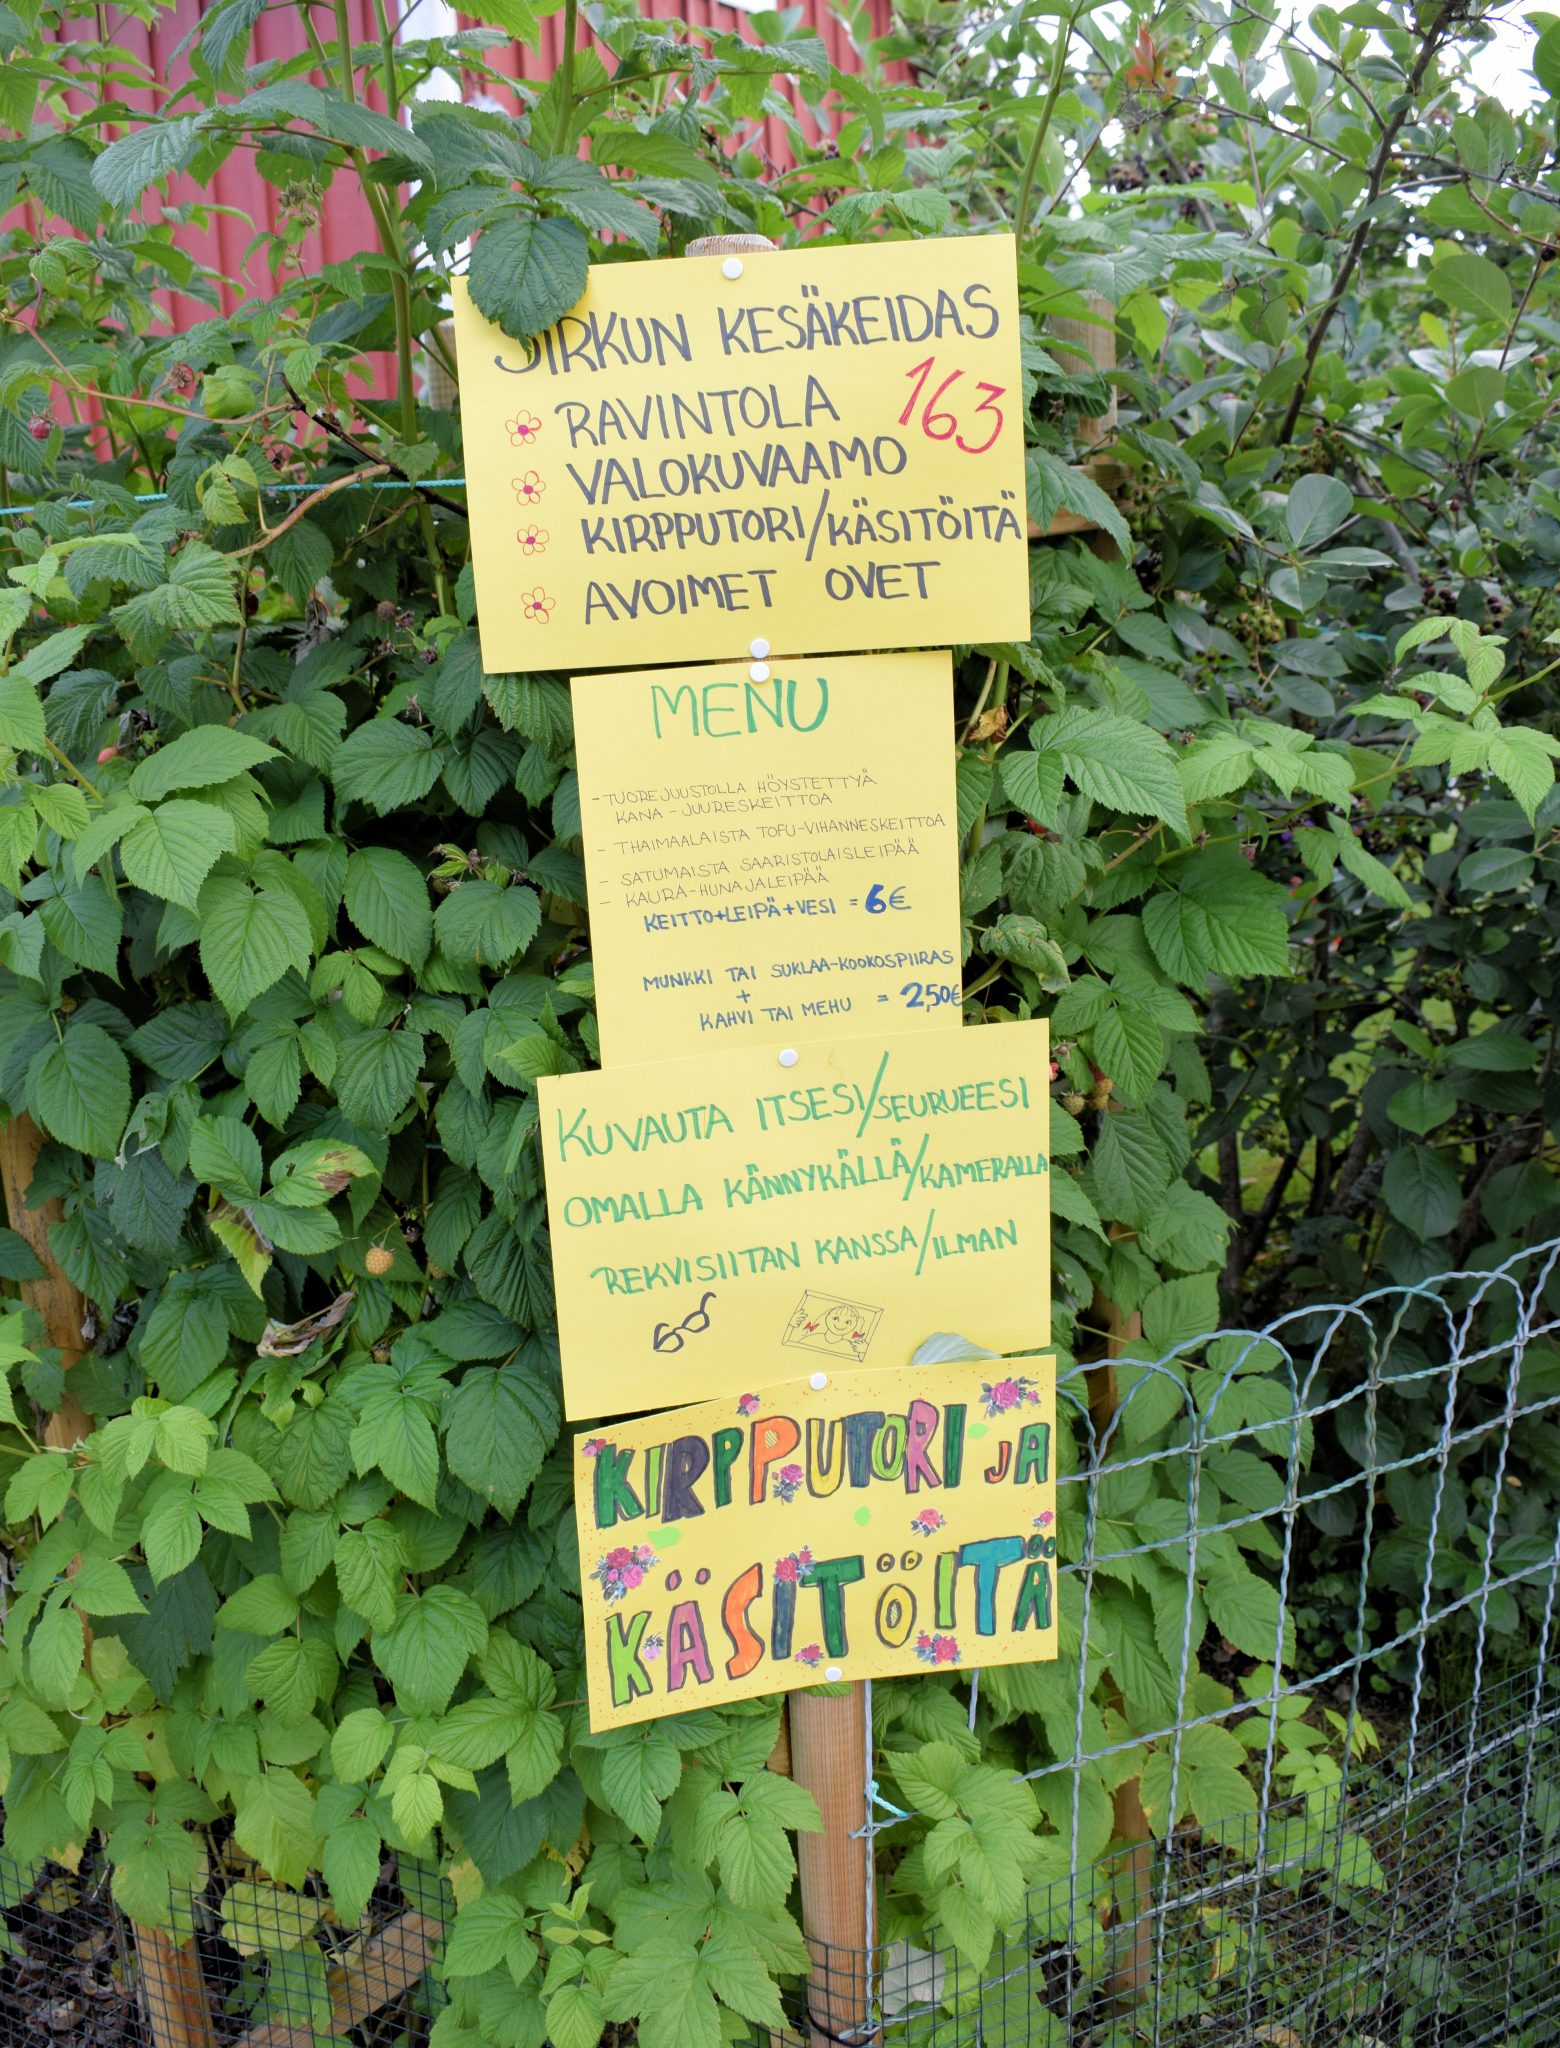 SIRKUN KESÄKEIDAS
RAVINTOLA 163
VALOKUVAAMO
KIRPPUTORI/KÄSITÖITÄ
AVOIMET OVET
MENU
- TUOREJUUSTOLLA HÖYSTETTYÄ
KANA-JUURESKEITTOA
- THAIMAALAISTA TOFU-VIHANNESKEITTOA
- SATUMAISTA SAARISTOLAISLEIPÄÄ
- KAURA-HUNAJALEIPÄÄ
KEITTO+LEIPÄ+VESI = 6€
MUNKKI TAI SUKLAA-KOOKOSPIIRAS
+
KAHVI TAI MEHU = 2,50€
KUVAUTA ITSESI/SEURUEESI
OMALLA KÄNNYKÄLLÄ/KAMERALLA
REKVISIITAN KANSSA/ILMAN
KIRPPUTORI JA
KÄSITÖITÄ